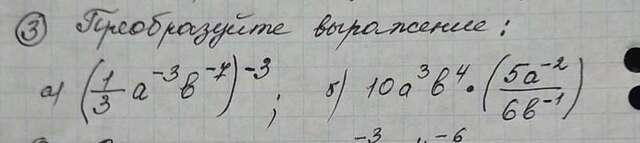 ③ Преобразуйте выражение:
а) (1/3 a⁻³ b⁻⁷)⁻³; б) 10a³b⁴ · (5a⁻²/6b⁻¹)